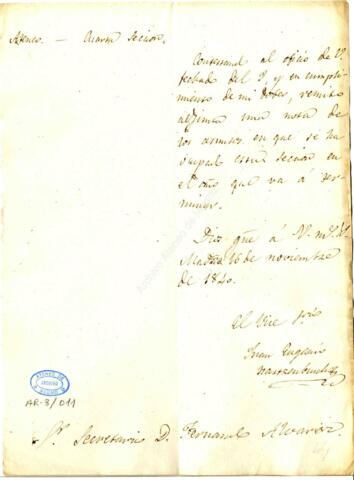 Ateneo. — Cuarta Seccion.
Contestando al oficio de V.
fechado del 9, y en cumpli-
miento de mi deber, remito
adjunta una nota de
los asuntos en que se ha
ocupado esta seccion en
el año que va á ter-
minar.
Dios gue á V. ms. as.
Madrid 16 de noviembre
de 1840.
El Vice Pres
Juan Eugenio
Hartzenbusch
ATENEO DE
MADRID
AR-3/011
Sr. Secretario D. Fernando Alvarez.
Archivo Ateneo de